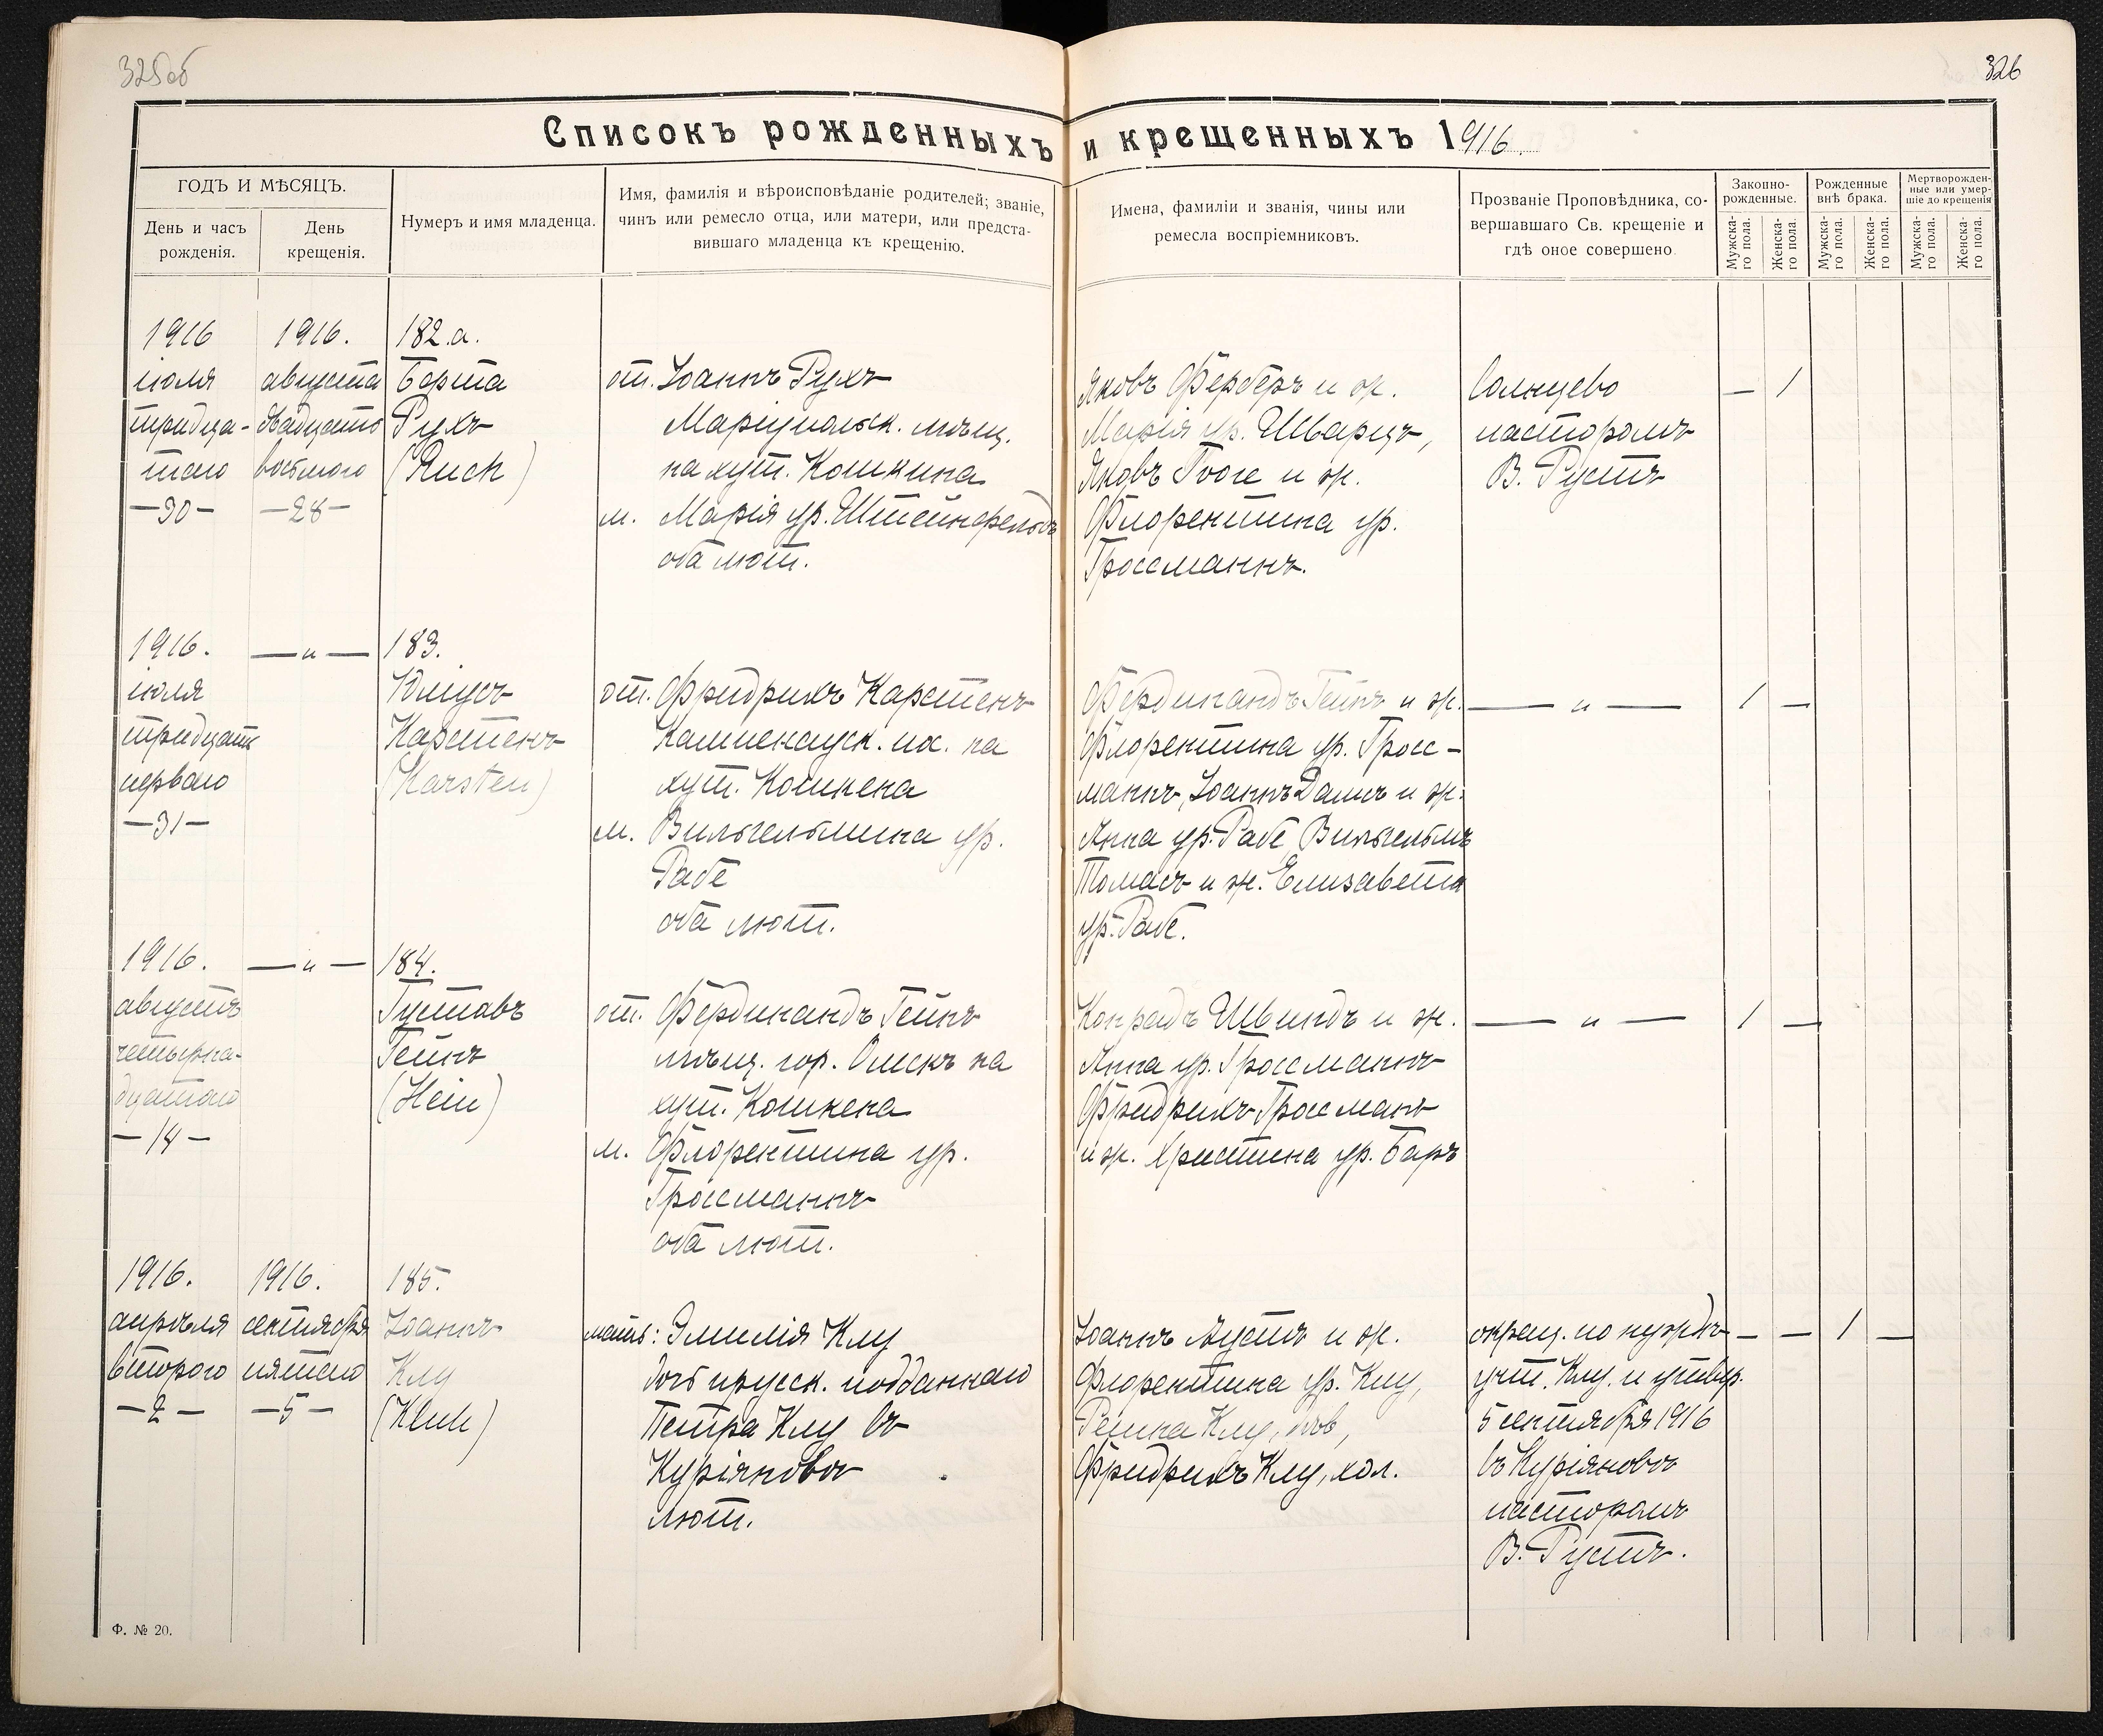 325об
326
Списокъ рожденныхъ и крещенныхъ 1916.
ГОДЪ И МѢСЯЦЪ.
День и часъ
рожденія.
День
крещенія.
Нумеръ и имя младенца.
Имя, фамилія и вѣроисповѣданіе родителей; званіе,
чинъ или ремесло отца, или матери, или предста-
вившаго младенца къ крещенію.
Имена, фамиліи и званія, чины или
ремесла воспріемниковъ.
Прозваніе Проповѣдника, со-
вершавшаго Св. крещеніе и
гдѣ оное совершено
Законно-
рожденные.
Рожденные
внѣ брака.
Мертворожден-
ные или умер-
шіе до крещенія
Мужска-
го пола.
Женска-
го пола.
Мужска-
го пола.
Женска-
го пола.
Мужска-
го пола.
Женска-
го пола.
1916
іюля
тридца-
таго
—30—
1916.
августа
двадцать
восьмого
—28—
182.а.
Берта
Рухъ
(Ruch)
от. Іоаннъ Рухъ
Маріупольск. мѣщ.
на хут. Кошкина
м. Марія ур. Штейнфельдъ
оба лют.
Яковъ Ферберъ и ж.
Марія ур. Шварцъ,
Яковъ Гооге и ж.
Флорентина ур.
Гроссманнъ.
Солнцево
пасторомъ
В. Рустъ
— 1
1916.
іюля
тридцать
перваго
—31—
— „ —
183.
Юліусъ
Карстенъ
(Karsten)
от. Фридрихъ Карстенъ
Каменецк. по. на
хут. Кошкена
м. Вильгельмина ур.
Рабе
оба лют.
Фердинандъ Гейнъ и ж.
Флорентина ур. Гросс-
маннъ, Іоаннъ Дамъ и ж.
Анна ур. Рабе, Вильгельмъ
Томасъ и ж. Елизавета
ур. Рабе.
— „ —
1 —
1916.
августъ
четырна-
дцатаго
—14—
— „ —
184.
Густавъ
Гейнъ
(Hein)
от. Фердинандъ Гейнъ
мѣщ. гор. Омскъ на
хут. Кошкена
м. Флорентина ур.
Гроссманнъ
оба лют.
Конрадъ Швиндъ и ж.
Анна ур. Гроссманнъ
Фридрихъ Гроссманъ
и ж. Христина ур. Баръ
— „ —
1 —
1916.
апрѣля
второго
—2—
1916.
сентября
пятаго
—5—
185.
Іоаннъ
Клу
(Kluh)
мать: Эмилія Клу
дочь прусск. подданнаго
Петра Клу въ
Куріяновъ
лют.
Іоаннъ Аустъ и ж.
Флорентина ур. Клу,
Клу, дѣв,
Фридрихъ Клу, хол.
окрещ. по нуждѣ
учит. Клу. и утвер.
5 сентября 1916
въ Куріяновъ
пасторомъ
В. Рустъ.
— — 1 —
Ф. № 20.